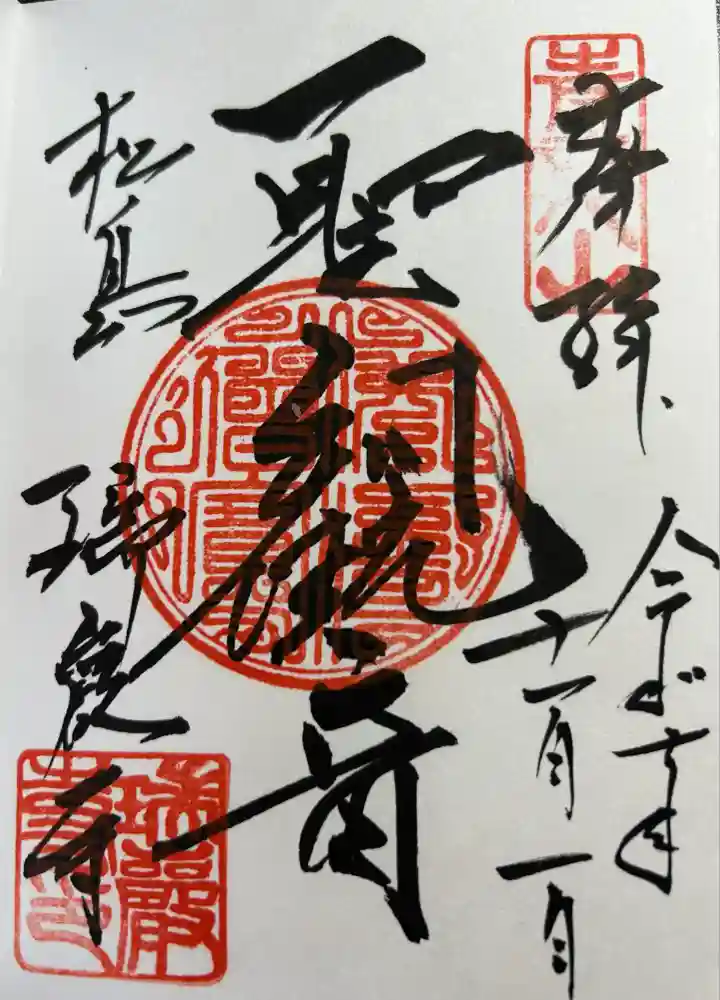 奉拝
青龍山
令和
十一月一日
聖観世音
松島
瑞巌寺
瑞巖